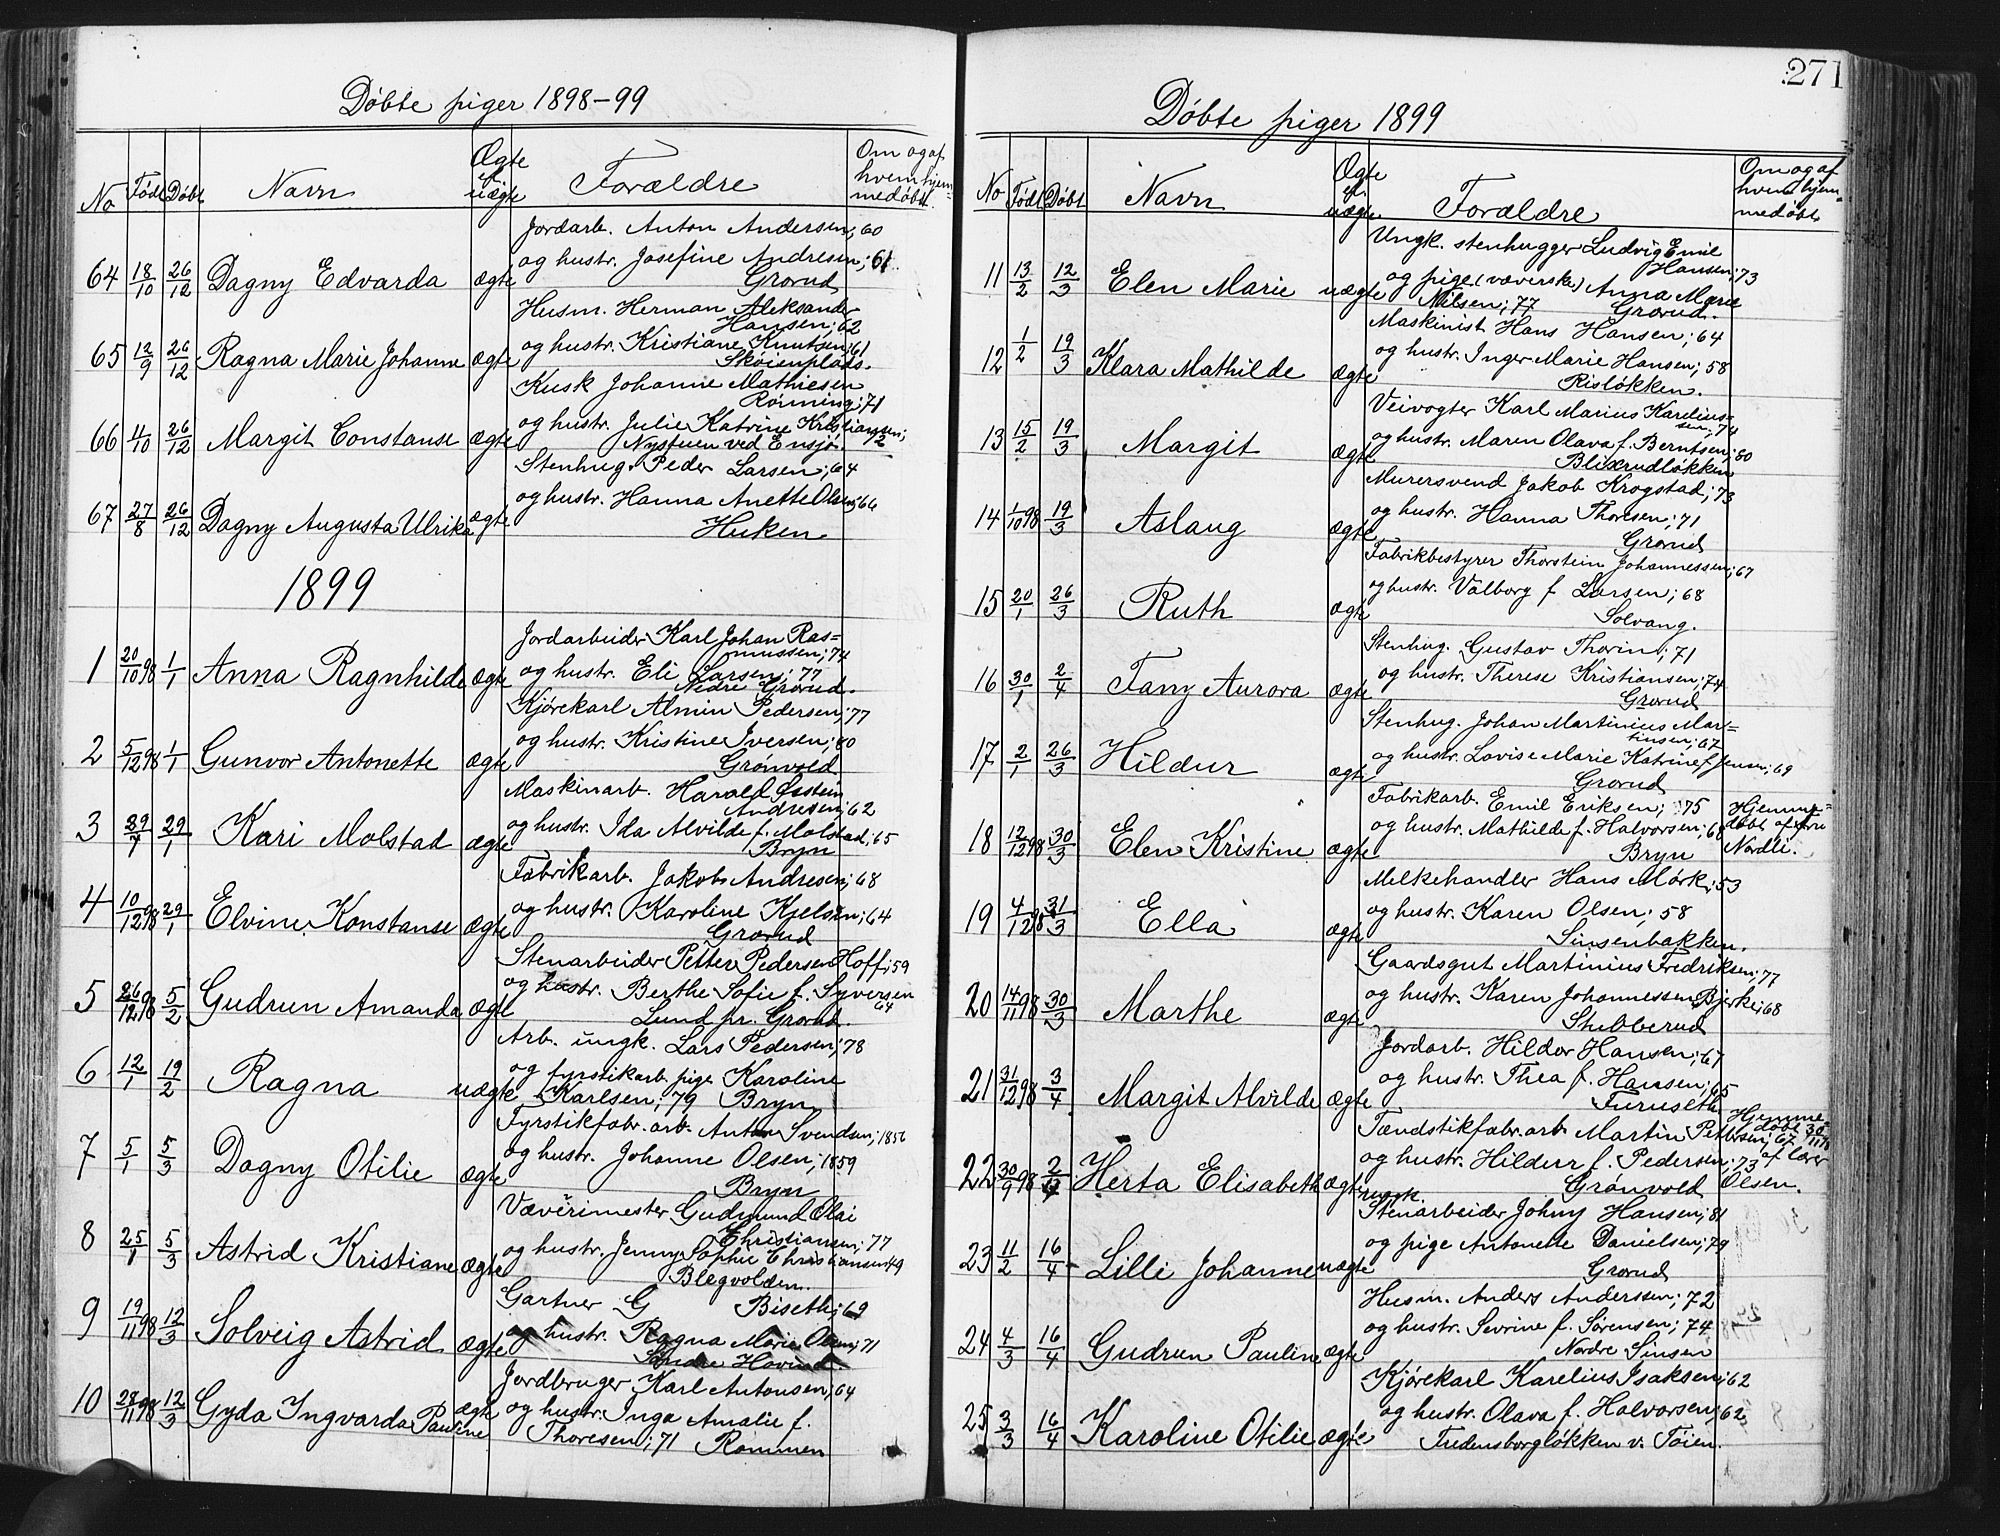 Døbte piger 1898-99
No Født Døbt Navn Ægte el. uægte Forældre Om og af hvem hjemmedøbt.
Jordarb. Anton Andersen; 60
64 18/10 26/12 Dagny Edvarda ægte og hustr. Josefine Andresen; 61.
Grorud
Husm. Herman Aleksander
Hansen; 62
65 12/9 26/12 Ragna Marie Johanne ægte og hustr. Kristiane Knutsen; 61
Skøienplads.
Kusk Johanne Mathiesen
Rønning; 71
66 4/10 26/12 Margit Constanse ægte og hustr. Julie Katrine Kristiansen; 72
Nystuen ved Ensjø.
Stenhug. Peder Larsen; 64
67 27/8 26/12 Dagny Augusta Ulrika ægte og hustr. Hanna Anette Olsen; 66
Huken
1899
Jordarbeider Karl Johan Ras=
mussen; 74
1 20/10 98 1/1 Anna Ragnhilde ægte og hustr. Eli Larsen; 77
Nedre Grorud.
Kjørekarl Almin Pedersen; 77
2 5/12 98 1/1 Gunvor Antonette ægte og hustr. Kristine Iversen; 80
Grønvold
Maskinarb. Harald Østein
Andresen; 62
3 29/7 29/1 Kari Molstad ægte og hustr. Ida Alvilde f. Molstad, 65
Bryn
Fabrikarb. Jakob Andresen; 68
4 10/12 98 29/1 Elvine Konstanse ægte og hustr. Karoline Kjelsen; 64
Grorud
Stenarbeider Petter Pedersen Hoff; 59
5 26/12 98 5/2 Gudrun Amanda ægte og hustr. Berthe Sofie f. Syversen
64
Lund pr. Grorud.
Arb. ungk. Lars Pedersen; 78
6 12/1 19/2 Ragna uægte og fyrstikarb. pige Karoline
Karlsen; 79 Bryn
Fyrstikfabr. arb. Anton Svendsen; 1856
7 5/1 5/3 Dagny Otilie ægte og hustr. Johanne Olsen; 1859
Bryn
Væverimester Gudmund Olai
Christiansen; 77
8 25/1 5/3 Astrid Kristiane ægte og hustr. Jenny Sophie Christiansen 49
Blegvolden.
Gartner G Biseth; 69
9 19/11 98 12/3 Solveig Astrid ægte og hustr. Ragna Marie Olsen; 71
Søndre Hovind.
Jordbruger Karl Antonsen; 64
10 28/11 98 12/3 Gyda Ingvarda Pauline ægte og hustr. Inga Amalie f.
Thoresen; 71 Rommen
271
Døbte piger 1899
No Født Døbt Navn Ægte el. uægte Forældre Om og af hvem hjemmedøbt
Ungk. stenhugger Ludvig Emil
Hansen; 73
11 13/2 12/3 Elen Marie uægte og pige (væverske) Anna Marie
Nilsen; 77 Grorud.
Maskinist Hans Hansen; 64
12 1/2 19/3 Klara Mathilde ægte og hustr. Inger Marie Hansen; 58
Risløkken.
Veivogter Karl Marius Karelius=
sen; 74
13 15/2 19/3 Margit ægte og hustr. Maren Olava f. Berntsen; 80
Blixrudløkken
Murersvend Jakob Krogstad; 73
14 1/10 98 19/3 Aslaug ægte og hustr. Hanna Thoresen; 71
Grorud
Fabrikbestyrer Thorstein Johannessen; 67
15 20/1 26/3 Ruth ægte og hustr. Valborg f Larsen; 68
Solvang.
Stenhug. Gustav Thorin; 71
16 30/1 2/4 Fany Aurora ægte og hustr. Therese Kristiansen; 74
Grorud
Stenhug. Johan Martinius Mar=
tinsen; 67
17 2/1 26/3 Hildur ægte og hustr. Lovise Marie Katrine f Jensen; 69
Grorud
Fabrikarb. Emil Eriksen; 75 Hjemme=
18 12/12 98 30/3 Elen Kristine ægte og hustr. Mathilde f. Halvorsen; 68 døbt af Fru
Bryn Nordli.
Melkehandler Hans Mørk; 53
19 4/12 98 31/3 Ella ægte og hustr. Karen Olsen; 58
Sinsenbakken.
Gaardsgut Martinius Fredriksen; 77
20 14/11 98 30/3 Marthe ægte og hustr. Karen Johannessen Bjerke; 68
Stubberud
Jordarb. Hildor Hansen; 67
21 31/12 98 3/4 Margit Alvilde ægte og hustr. Thea f. Hansen; 65
Furuseth
Tændstikfabr. arb. Martin Pettersen; 67 Hjemme døbt 30/11 98
22 30/9 98 2/4 Herta Elisabeth ægte og hustr. Hildur f. Pedersen; 73 af lærer
Grønvold Olsen.
ungk.
Stenarbeider Johny Hansen; 81
23 11/2 16/4 Lilli Johanne uægte og pige Antonette Danielsen; 79
Grorud
Husm. Anders Anderssen; 72
24 4/3 16/4 Gudrun Pauline ægte og hustr. Sevrine f. Sørensen; 74
Nordre Sinsen
Kjørekarl Karelius Isaksen; 62
25 3/3 16/4 Karoline Otilie ægte og hustr. Olava f. Halvorsen; 62
Fredensborgløkken v. Tøien.